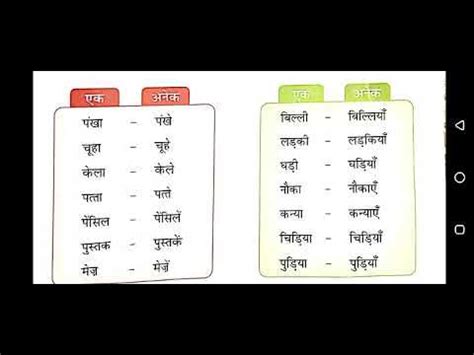 एक अनेक
पंखा – पंखे
चूहा – चूहे
केला – केले
पत्ता – पत्ते
पेंसिल – पेंसिलें
पुस्तक – पुस्तकें
मेज़ – मेज़ें
एक अनेक
बिल्ली – बिल्लियाँ
लड़की – लड़कियाँ
घड़ी – घड़ियाँ
नौका – नौकाएँ
कन्या – कन्याएँ
चिड़िया – चिड़ियाँ
पुड़िया – पुड़ियाँ